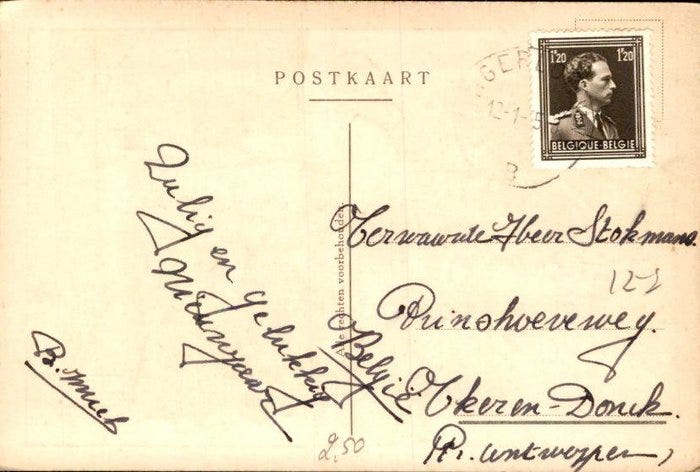 POSTKAART
1'20 1'20
BELGIQUE-BELGIE
12-1-5
Zalig en gelukkig
Nieuwjaar
België
Alle rechten voorbehouden
Heer Stokmans
Prinshoeveweg.
Ekeren-Donck.
Pr. Antwerpen,
2,50